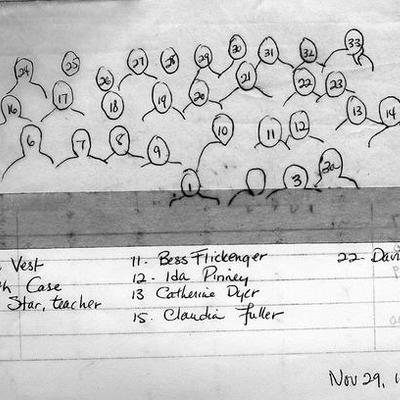 24 25 26 27 28 29 30 31 32 33
16 17 18 19 20 21 22 23
13 14
6 7 8 9 10 11 12
1 3 3a
Vest 11. Bess Flickenger 22 Davi
Case 12. Ida Pinney
Star, teacher 13 Catherine Dycr
15. Claudia Fuller
Nov 29, 1